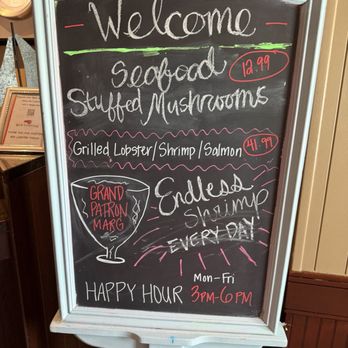 - Welcome -
Seafood 12.99
Stuffed Mushrooms
Grilled Lobster/Shrimp/Salmon 41.99
GRAND
PATRON
MARG
Endless
Shrimp
EVERY DAY!
Mon-Fri
HAPPY HOUR 3PM-6PM